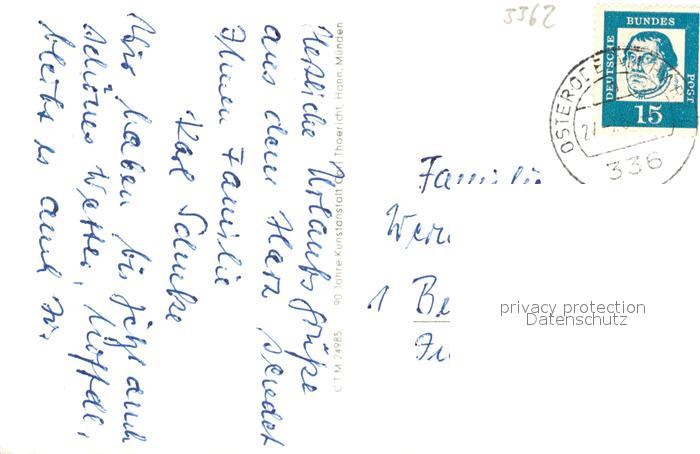 3362
DEUTSCHE
BUNDES
POST
15
OSTERODE
336
Herzliche Urlaubsgrüße
aus dem Harz sendet
Ihnen Familie
Karl
Wir haben bis jetzt auch
schönes Wetter, hofftl.
bleibt es auch so.
90 Jahre Kunstanstalt Carl Thoericht, Hann. Münden
C.T.M 74985
Familie
Wern
1 Be
privacy protection
Datenschutz